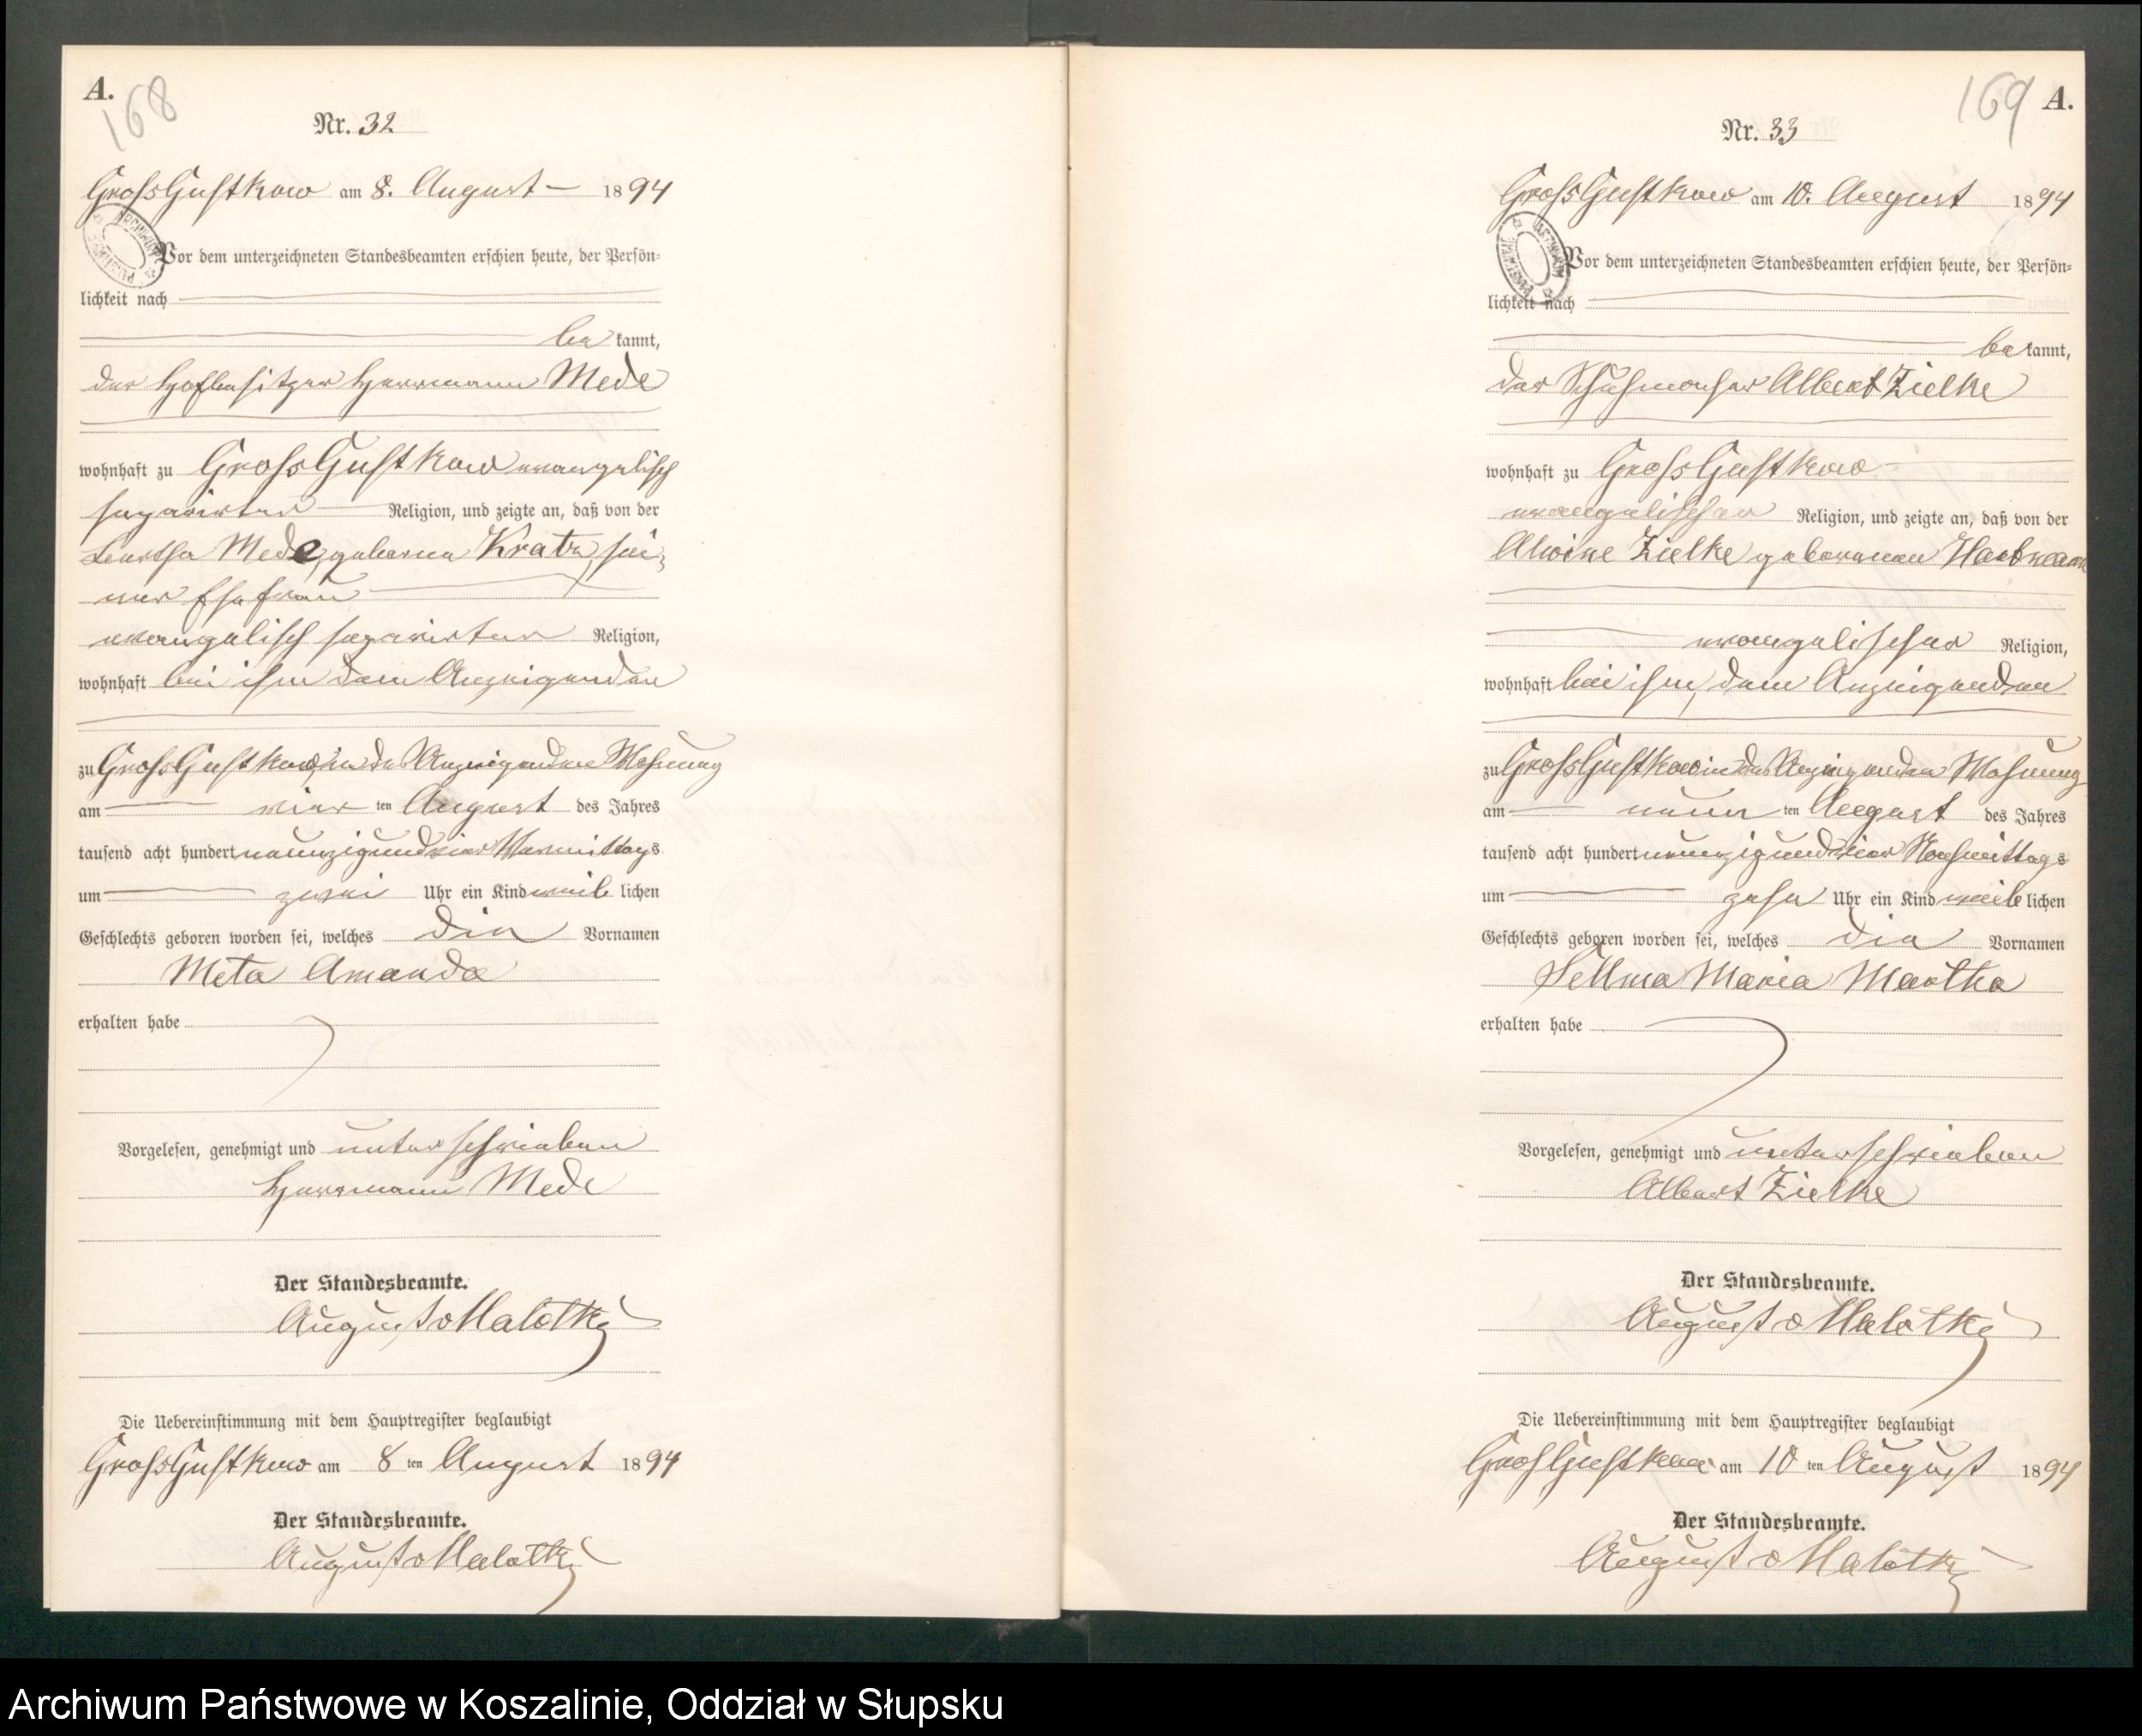 A.
168
Nr. 32
Gross Gustkow am 8. August 1894
Vor dem unterzeichneten Standesbeamten erschien heute, der Persön-
lichkeit nach
be kannt,
der Hofbesitzer Herrmann Mede
wohnhaft zu Gross Gustkow evangelisch
separirter Religion, und zeigte an, daß von der
Mede, geborne Kratz, sei-
ner Ehefrau
evangelisch separirter Religion,
wohnhaft bei ihm dem Anzeigenden
zu Gross Gustkow, in des Anzeigenden Wohnung
am vier ten August des Jahres
tausend acht hundert neunzig und vier Vormittags
um zwei Uhr ein Kind weib lichen
Geschlechts geboren worden sei, welches die Vornamen
Meta Amanda
erhalten habe
Vorgelesen, genehmigt und unterschrieben
Herrmann Mede
Der Standesbeamte.
August v Malotky
Die Uebereinstimmung mit dem Hauptregister beglaubigt
Gross Gustkow am 8 ten August 1894
Der Standesbeamte.
August v Malotky
169 A.
Nr. 33
Gross Gustkow am 10. August 1894
Vor dem unterzeichneten Standesbeamten erschien heute, der Persön-
lichkeit nach
be kannt,
der Schuhmacher Albert Zielke
wohnhaft zu Gross Gustkow
evangelischer Religion, und zeigte an, daß von der
Alwine Zielke geborenen
evangelischer Religion,
wohnhaft bei ihm, dem Anzeigenden
zu Gross Gustkow in des Anzeigenden Wohnung
am neun ten August des Jahres
tausend acht hundert neunzig und vier Nachmittags
um zehn Uhr ein Kind weib lichen
Geschlechts geboren worden sei, welches die Vornamen
Sellma Maria Martha
erhalten habe
Vorgelesen, genehmigt und unterschrieben
Albert Zielke
Der Standesbeamte.
August v Malotky
Die Uebereinstimmung mit dem Hauptregister beglaubigt
Gross Gustkow am 10 ten August 1894
Der Standesbeamte.
August v Malotky
Archiwum Państwowe w Koszalinie, Oddział w Słupsku